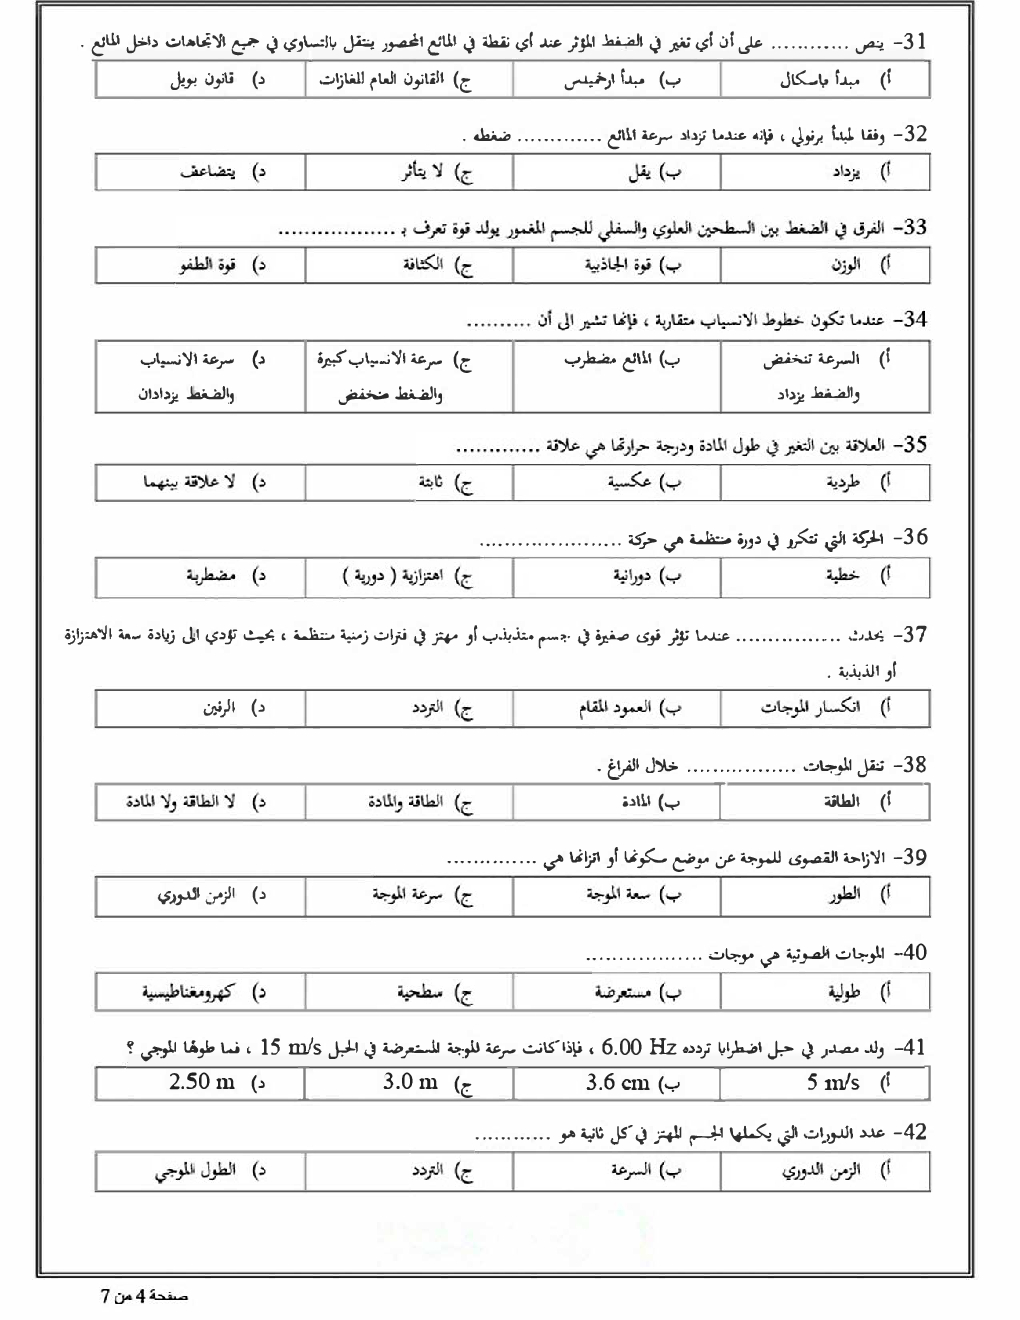 31- ينص ............ على أن أي تغير في الضغط المؤثر عند أي نقطة في المائع المحصور ينتقل بالتساوي في جميع الاتجاهات داخل المائع .
أ) مبدأ باسكال ب) مبدأ ارخميدس ج) القانون العام للغازات د) قانون بويل
32- وفقا لمبدأ برنولي ، فإنه عندما تزداد سرعة المائع ............. ضغطه .
أ) يزداد ب) يقل ج) لا يتأثر د) يتضاعف
33- الفرق في الضغط بين السطحين العلوي والسفلي للجسم المغمور يولد قوة تعرف بـ ..................
أ) الوزن ب) قوة الجاذبية ج) الكثافة د) قوة الطفو
34- عندما تكون خطوط الانسياب متقاربة ، فإنها تشير الى أن ..........
أ) السرعة تنخفض ب) المائع مضطرب ج) سرعة الانسياب كبيرة د) سرعة الانسياب
والضغط يزداد والضغط منخفض والضغط يزدادان
35- العلاقة بين التغير في طول المادة ودرجة حرارتها هي علاقة .............
أ) طردية ب) عكسية ج) ثابتة د) لا علاقة بينهما
36- الحركة التي تتكرر في دورة منتظمة هي حركة ......................
أ) خطية ب) دورانية ج) اهتزازية ( دورية ) د) مضطربة
37- يحدث ................ عندما تؤثر قوى صغيرة في جسم متذبذب أو مهتز في فترات زمنية منتظمة ، بحيث تؤدي الى زيادة سعة الاهتزازة
أو الذبذبة .
أ) انكسار الموجات ب) العمود المقام ج) التردد د) الرنين
38- تنقل الموجات ................. خلال الفراغ .
أ) الطاقة ب) المادة ج) الطاقة والمادة د) لا الطاقة ولا المادة
39- الازاحة القصوى للموجة عن موضع سكونها أو اتزانها هي ..............
أ) الطور ب) سعة الموجة ج) سرعة الموجة د) الزمن الدوري
40- الموجات الصوتية هي موجات ..................
أ) طولية ب) مستعرضة ج) سطحية د) كهرومغناطيسية
41- ولد مصدر في حبل اضطرابا تردده 6.00 Hz ، فإذا كانت سرعة الموجة المستعرضة في الحبل 15 m/s ، فما طولها الموجي ؟
أ) 5 m/s ب) 3.6 cm ج) 3.0 m د) 2.50 m
42- عدد الدورات التي يكملها الجسم المهتز في كل ثانية هو ............
أ) الزمن الدوري ب) السرعة ج) التردد د) الطول الموجي
صفحة 4 من 7